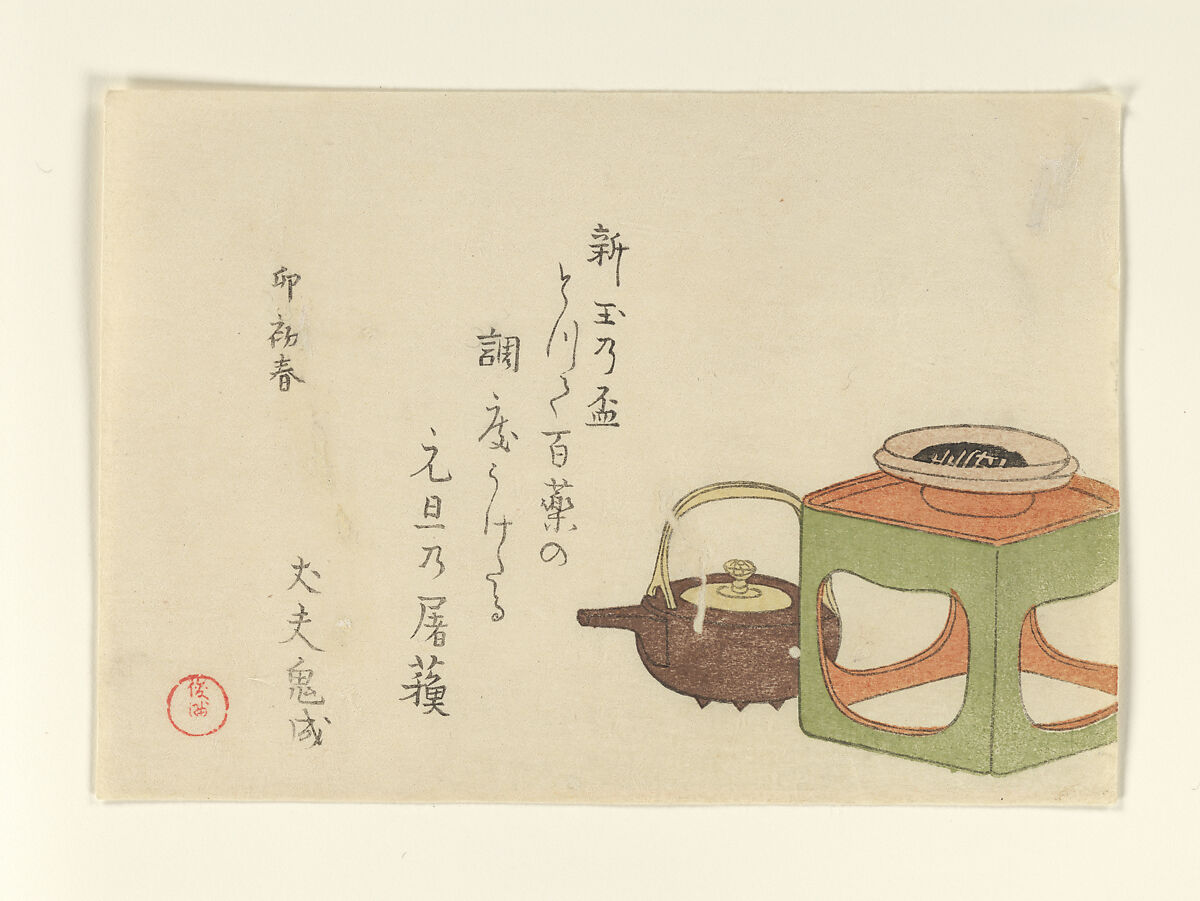 新玉乃盃
とりつゝ百薬の
調度うけたる
元旦乃屠蘓
卯初春
大夫鬼成
俊満